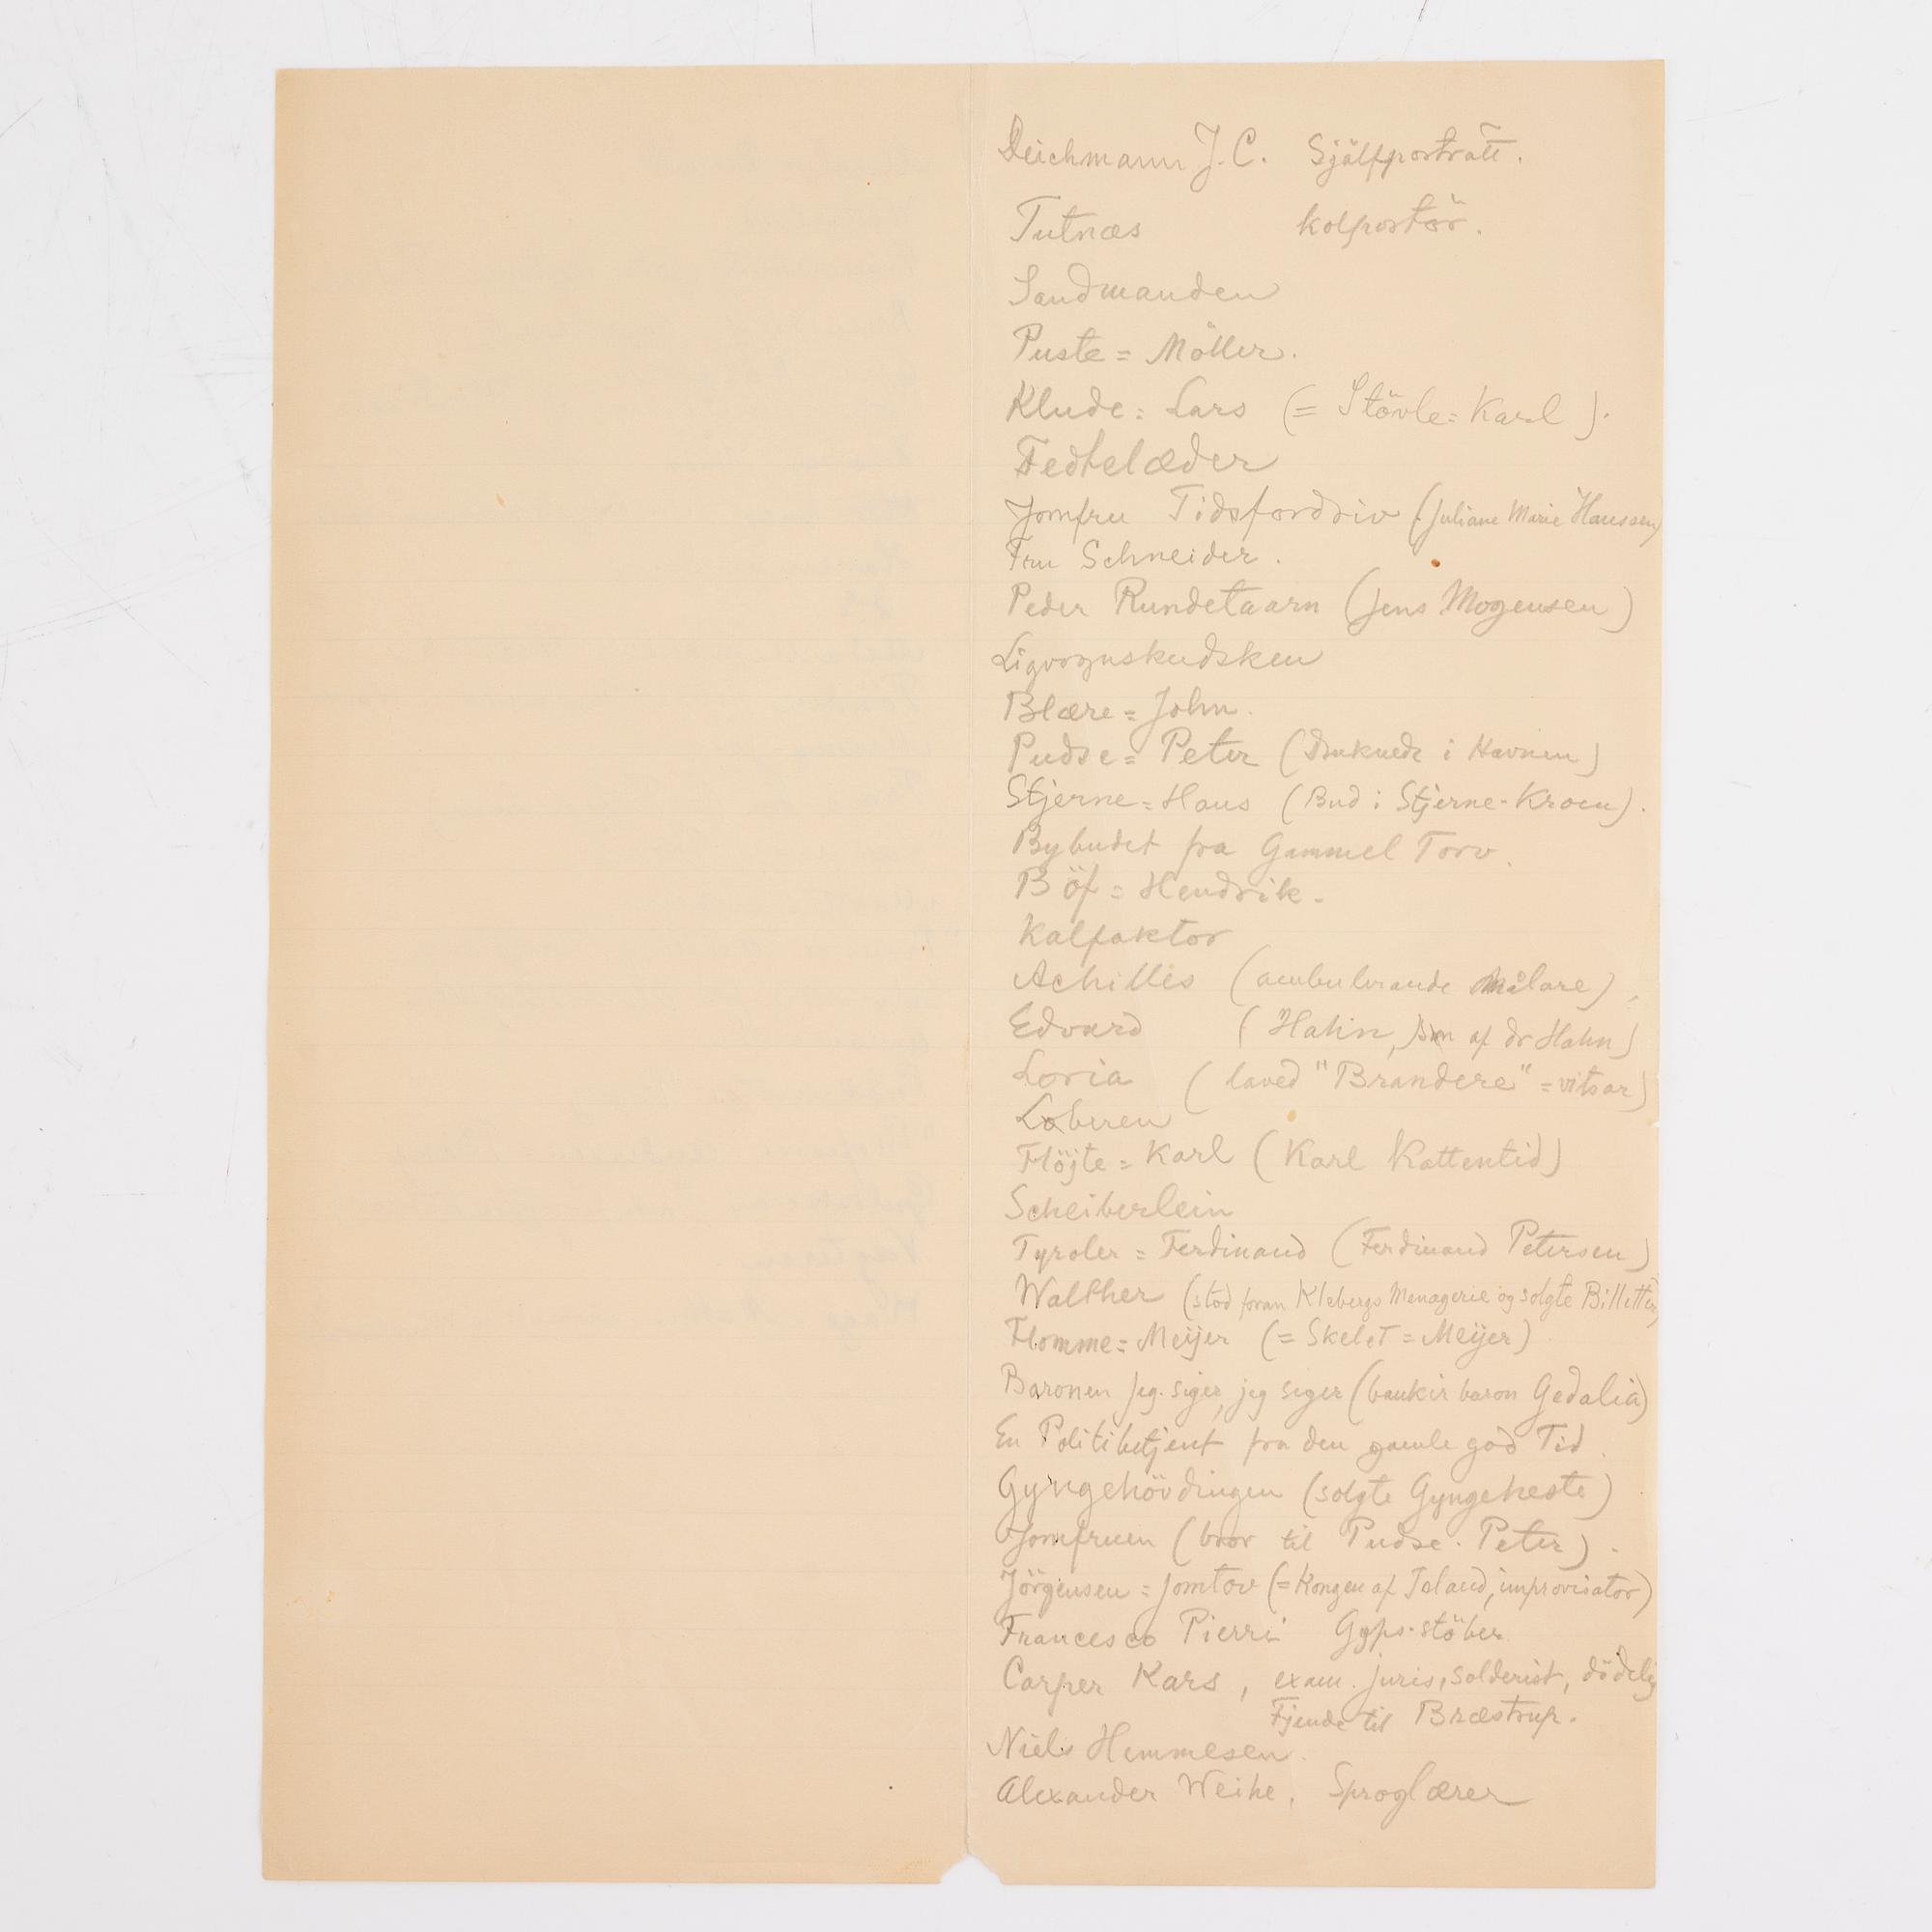 Deichmann J. C. Självporträtt.
Tutnæs kolportör.
Sandmanden
Puste = Möller.
Klude = Lars (= Stövle = Karl).
Fedtelæder
Jomfru Tidsfordriv (Juliane Marie Haussen)
Fru Schneider.
Peder Rundetaarn (Jens Mogensen)
Ligvognskudsken
Blære = John.
Pudse = Peter (druknede i Havnen)
Stjerne = Hans (Bud i Stjerne-Kroen).
Bybudet fra Gammel Torv.
Böf = Hendrik.
Kalfaktor
Achilles (ambulerande målare),
Edvard (Hahn, son af dr Hahn)
Loria (laved "Brandere" = vitsar)
Loberen
Flöjte = Karl (Karl Kattentid)
Scheiberlein
Tyroler = Ferdinand (Ferdinand Petersen)
Walther (stod foran Klebergs Menagerie og solgte Billetter)
Flomme = Meijer (= Skelet = Meijer)
Baronen jeg siger, jeg siger (bankir baron Gedalia)
En Politibetjent fra den gamle god Tid.
Gyngehövdingen (solgte Gyngeheste)
Jomfruen (bror til Pudse-Peter).
Jörgensen = Jomtov (= Kongen af Island, improvisator)
Francesco Pierri Gyps-stöber
Carper Kars, exam. juris, solderist, dödelig
Fjende til Bræstrup.
Niels Hemmesen.
Alexander Weihe, Sproglærer